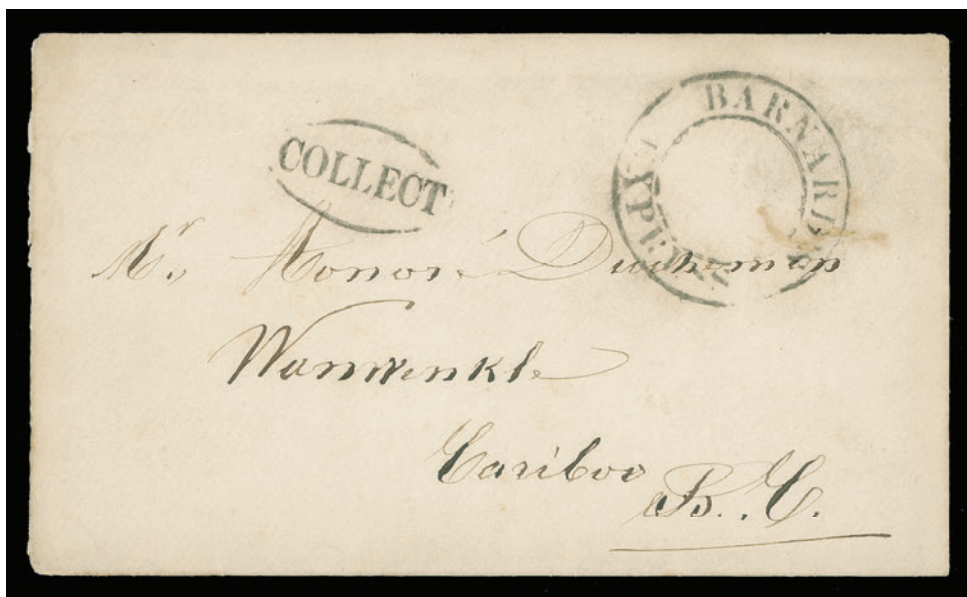 COLLECT
BARNARD'S
EXPRESS
Mr. Honoré Duchemin
Wanwenkle
Cariboo
B. C.